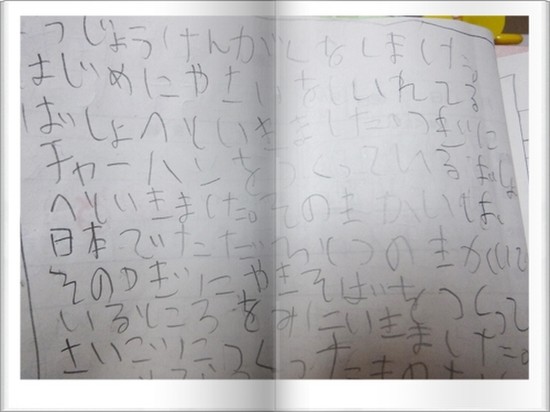 うじょうけんがくをしました。
はじめにやさいをいれてる
ばしょへといきました。つぎに
チャーハンをつくっているばしょ
へといきました。そのきかいは、
日本でただひとつのきかいで
そのつぎにやきそばをつくって
いるところをみにいきました。
さいごにつくったもの